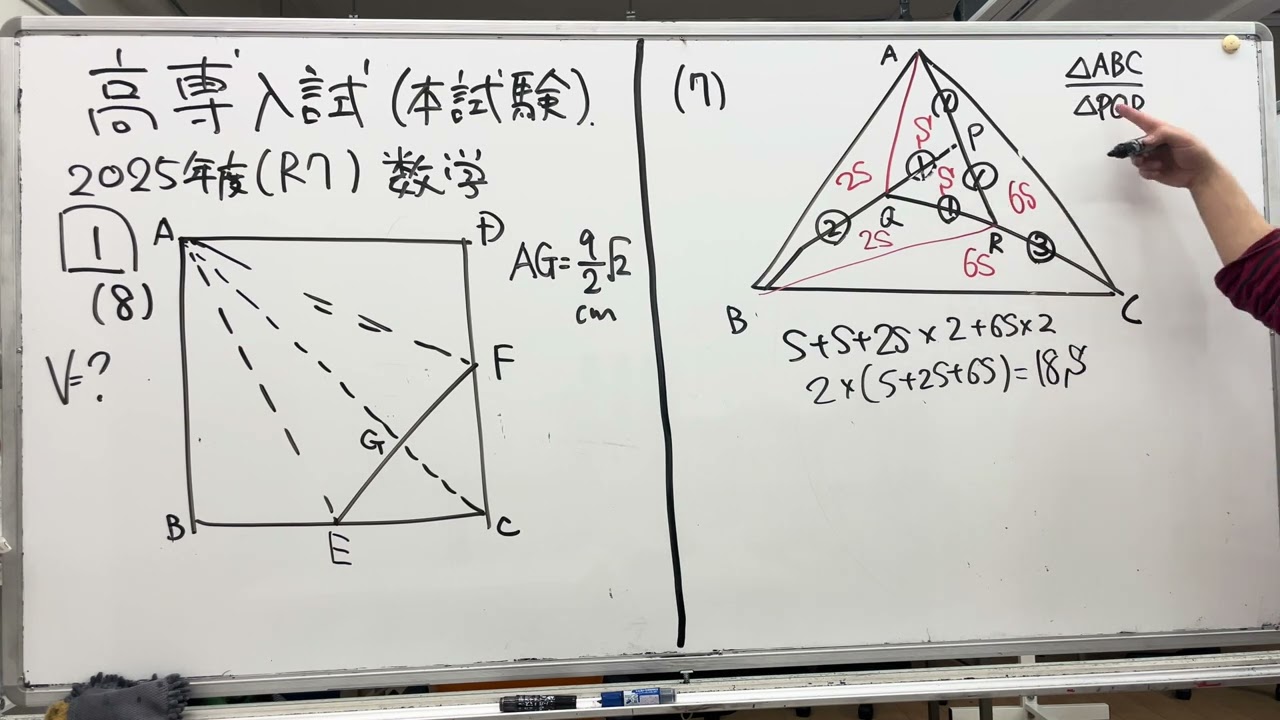 高専入試(本試験).
2025年度(R7)数学
1
(8)
V=?
A
D
F
G
B
E
C
AG=9/2√2
cm
(7)
A
P
Q
R
B
C
①
①
①
①
②
③
S
S
2S
2S
6S
6S
△ABC
△PQR
S+S+2S×2+6S×2
2×(S+2S+6S)=18S